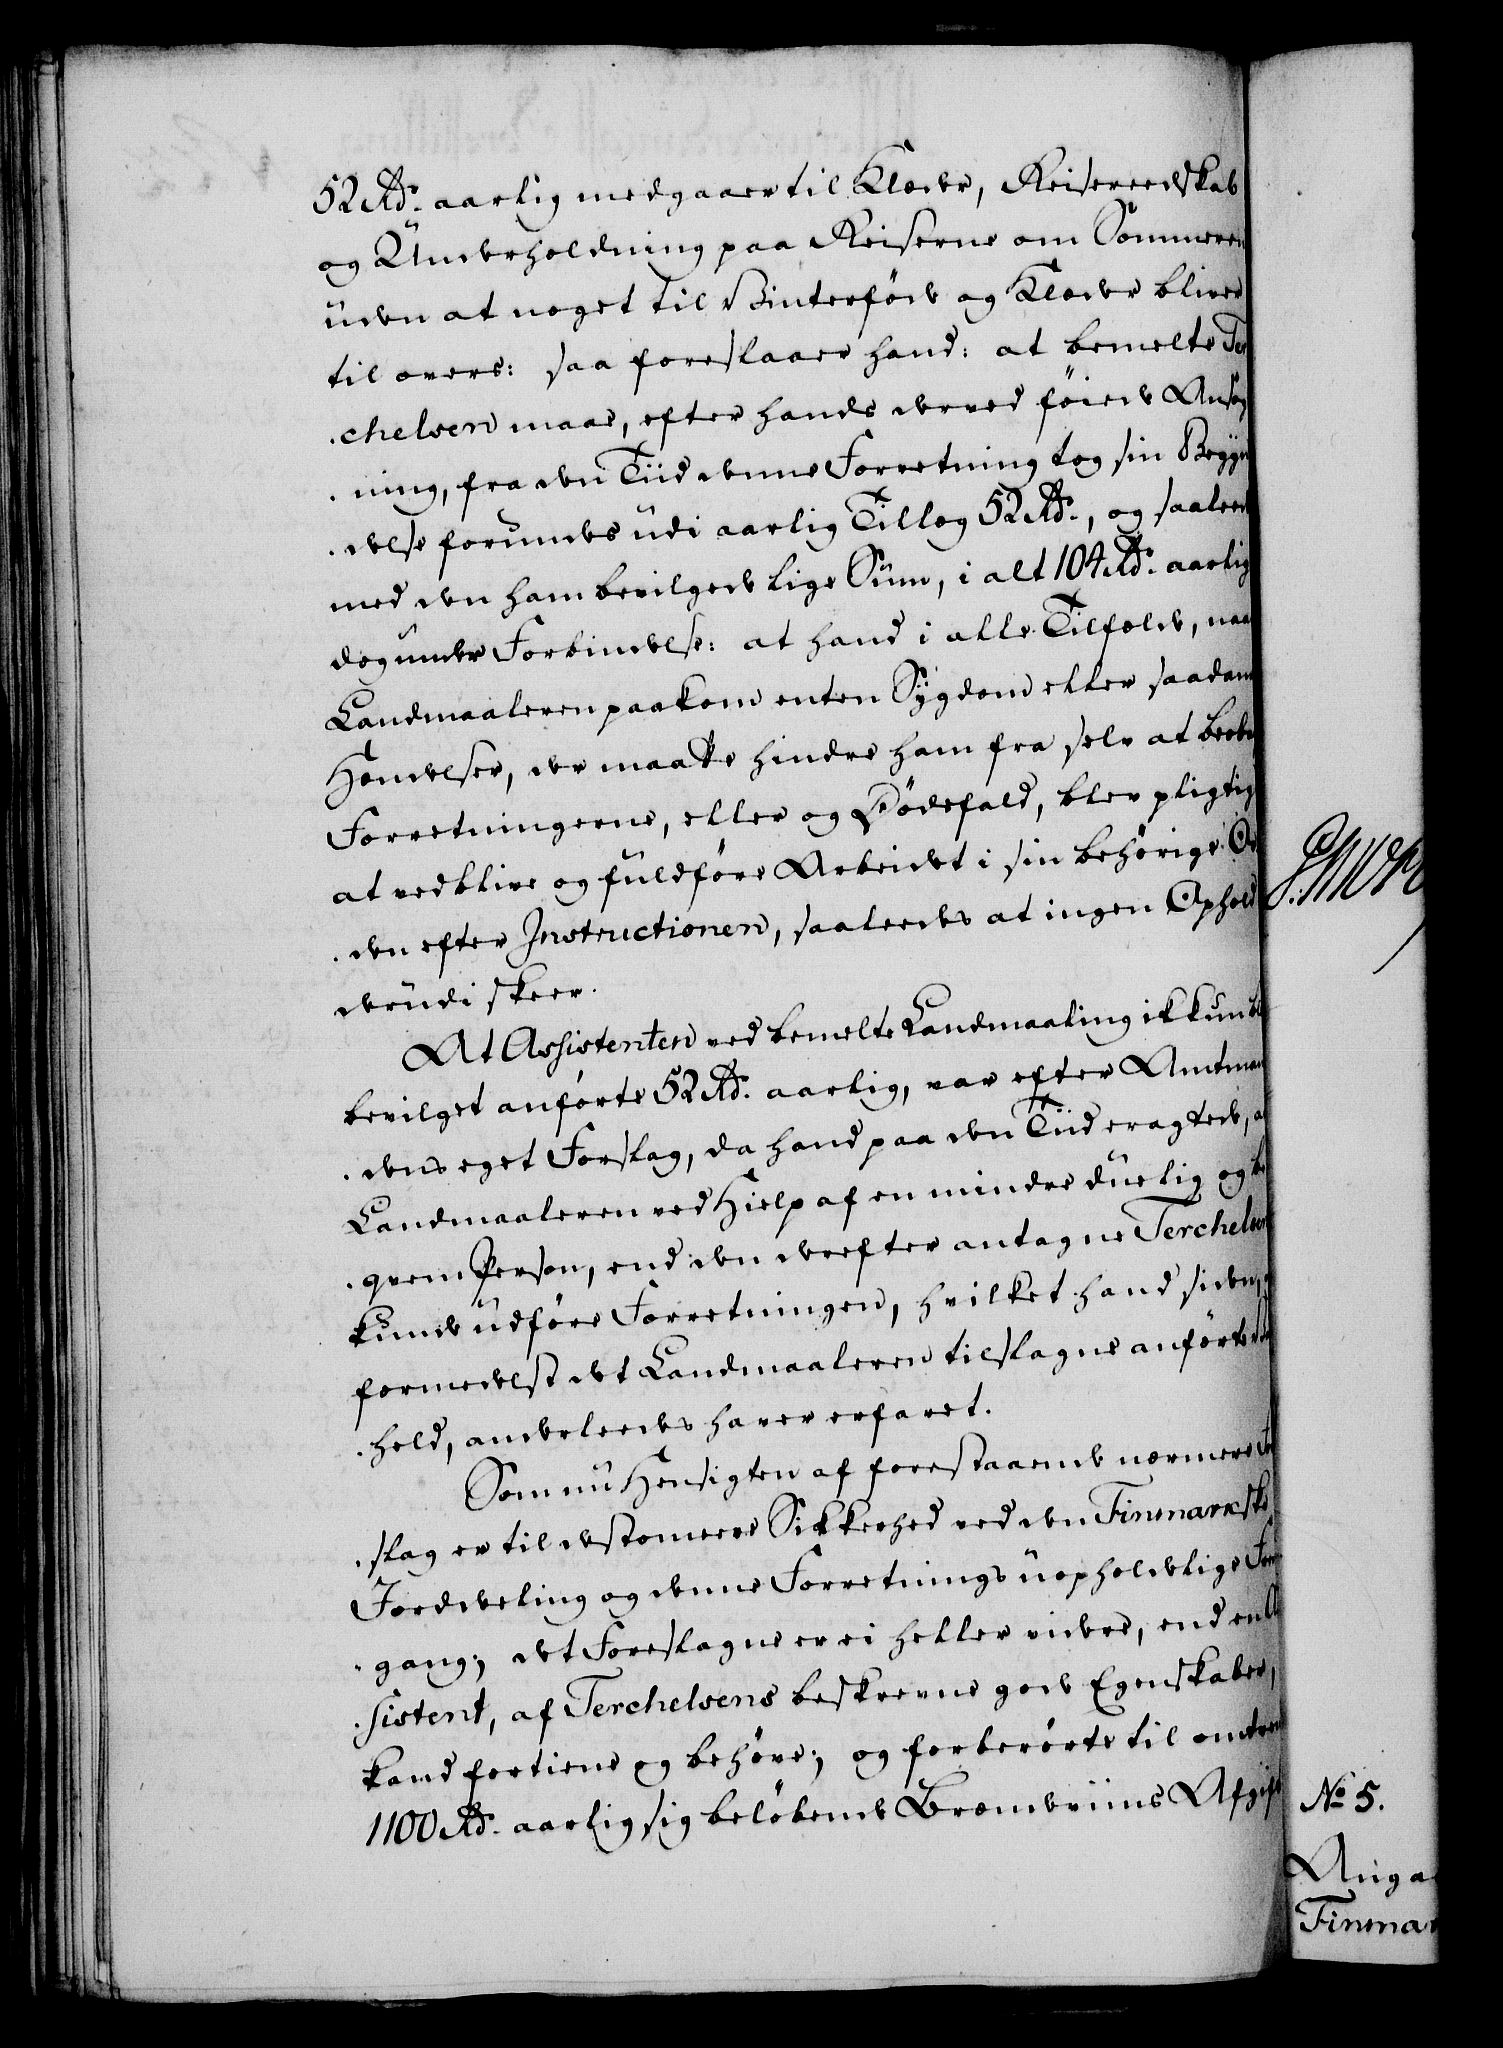 52 Rd. aarlig medgaaer til Klæder, Reiseredskab
og Underholdning paa Reiserne om Sommeren
uden at noget til Vinterføde og Klæder bliver
til overs: saa foreslaaer hand: at bemelte Ter
.chelsen maae, efter hands derved føiede Ansøg
.ning, fra den Tiid denne Forretning tog sin Begyn
.delse forundes udi aarlig Tillæg 52 Rd., og saaleed
med den ham bevilgede lige Sum, i alt 104 Rd. aarlig
dog under Forbindelse: at hand i alle Tilfælde, naar
Landmaaleren paakom enten Sygdom eller saadan
Hændelser, der maatte hindre ham fra selv at beob
Forretningerne, eller og Dødsfald, blev pligtig
at vedblive og fuldføre Arbeidet i sin behørige Or
.den efter Instructionen, saaledes at ingen Ophold
derudi skeer.
At Assistenten ved bemelte Landmaaling ikkun bl
bevilget anførte 52 Rd. aarlig, var efter Amtman
.dens eget Forslag, da hand paa den Tiid eragtede, at
Landmaaleren ved Hielp af en mindre duelig og be
.qvem Person, end den derefter antagne Terchelsen
kunde udføre Forretningen, hvilket hand siden,
formedelst det Landmaaleren tilslagne anførte
.held, anderledes haver erfaret.
Som nu Hensigten af forestaaende nærmere For
.slag er til destomeere Sikkerhed ved den Finmarkske
Jorddeling og denne Forretnings uopholdelige Frem
.gang; det Foreslagne er ei heller videre, end en As
.sistent, af Terchelsens beskrevne gode Egenskaber,
kand fortiene og behøve; og forberørte til omtrent
1100 Rd. aarlig sig beløbende Brændeviins Afgift
No 5.
Ang a
Finmar